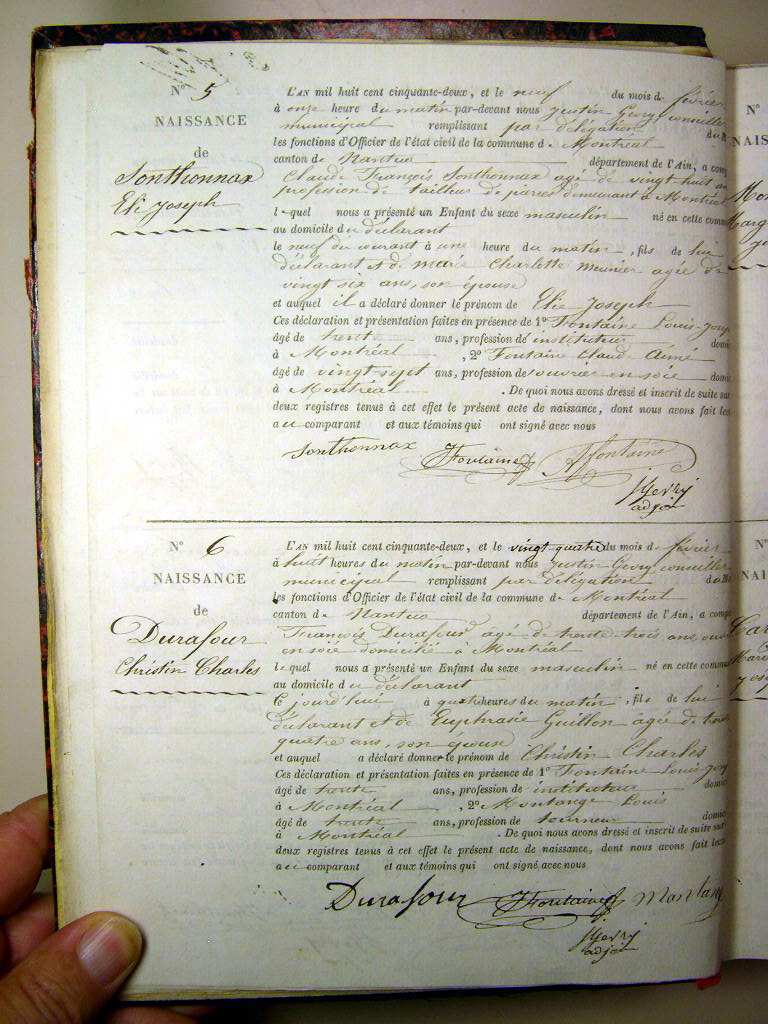 N° 5
NAISSANCE
de
Sonthonnax
Elie Joseph
L'AN mil huit cent cinquante-deux, et le neuf du mois de février
à onze heure du matin par-devant nous Justin Gery conseiller
municipal remplissant par délégation
les fonctions d'Officier de l'état civil de la commune de Montréal
canton de Nantua département de l'Ain, a comp
Claude François Sonthonnax agé de vingt huit an
profession de tailleur de pierres demeurant à Montréal
lequel nous a présenté un Enfant du sexe masculin né en cette comm
au domicile du déclarant
le neuf du courant à une heure du matin, fils de lui
déclarant et de marie Charlotte meunier agée de
vingt six ans, son épouse
et auquel il a déclaré donner le prénom de Elie Joseph
Ces déclaration et présentation faites en présence de 1° Fontaine Louis-Josep
âgé de trente ans, profession de instituteur domi
à Montréal, 2° Fontaine Claude Aimé
âgé de vingt sept ans, profession de ouvrier en soie domic
à Montréal. De quoi nous avons dressé et inscrit de suite sur
deux registres tenus à cet effet le présent acte de naissance, dont nous avons fait lec
au comparant et aux témoins qui ont signé avec nous
Sonthonnax JFontaine Afontaine
JGery
adjoi
N° 6
NAISSANCE
de
Durafour
Christin Charles
L'AN mil huit cent cinquante-deux, et le vingt quatre du mois de février
à huit heures du matin par-devant nous Justin Gery conseiller
municipal remplissant par délégation
les fonctions d'Officier de l'état civil de la commune de Montréal
canton de Nantua département de l'Ain, a comp
François Durafour agé de trente trois ans, ouv
en soie domicilié à Montréal
lequel nous a présenté un Enfant du sexe masculin né en cette commun
au domicile du déclarant
Ce jourd'hui à quatre heures du matin, fils de lui
déclarant et de Euphrasie Guillon agée de tren
quatre ans, son épouse
et auquel a déclaré donner le prénom de Christin Charles
Ces déclaration et présentation faites en présence de 1° Fontaine Louis Josep
âgé de trente ans, profession de instituteur domic
à Montréal, 2° Montange Louis
âgé de trente ans, profession de tourneur domic
à Montréal. De quoi nous avons dressé et inscrit de suite sur
deux registres tenus à cet effet le présent acte de naissance, dont nous avons fait lect
au comparant et aux témoins qui ont signé avec nous
Durafour JFontaine Montang
JGery
adjoi